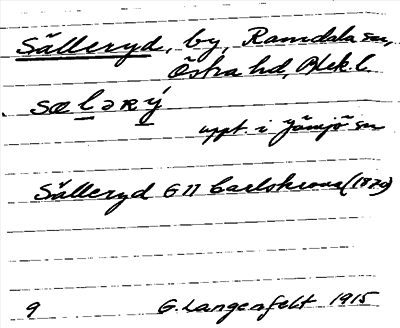 Sälleryd, by, Ramdala sn,
Östra hd, Blek. l.
sæləRý
uppt. i Jämjö sn
Sälleryd G 11 Carlskrona (1870)
9 G. Langenfelt 1915